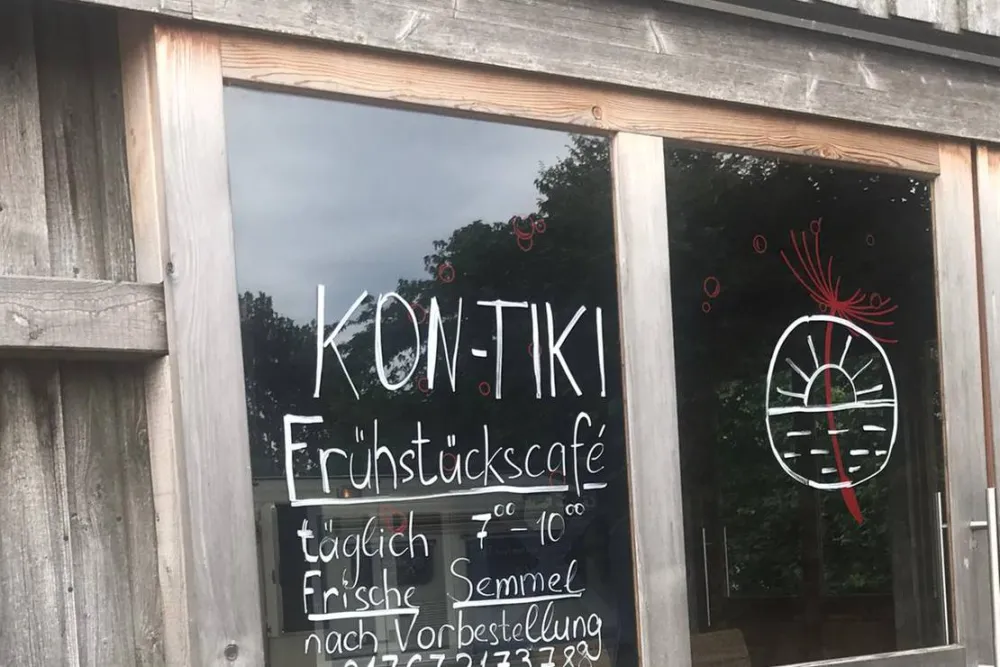 KON-TIKI
Frühstückscafé
täglich 7⁰⁰-10⁰⁰
Frische Semmel
nach Vorbestellung